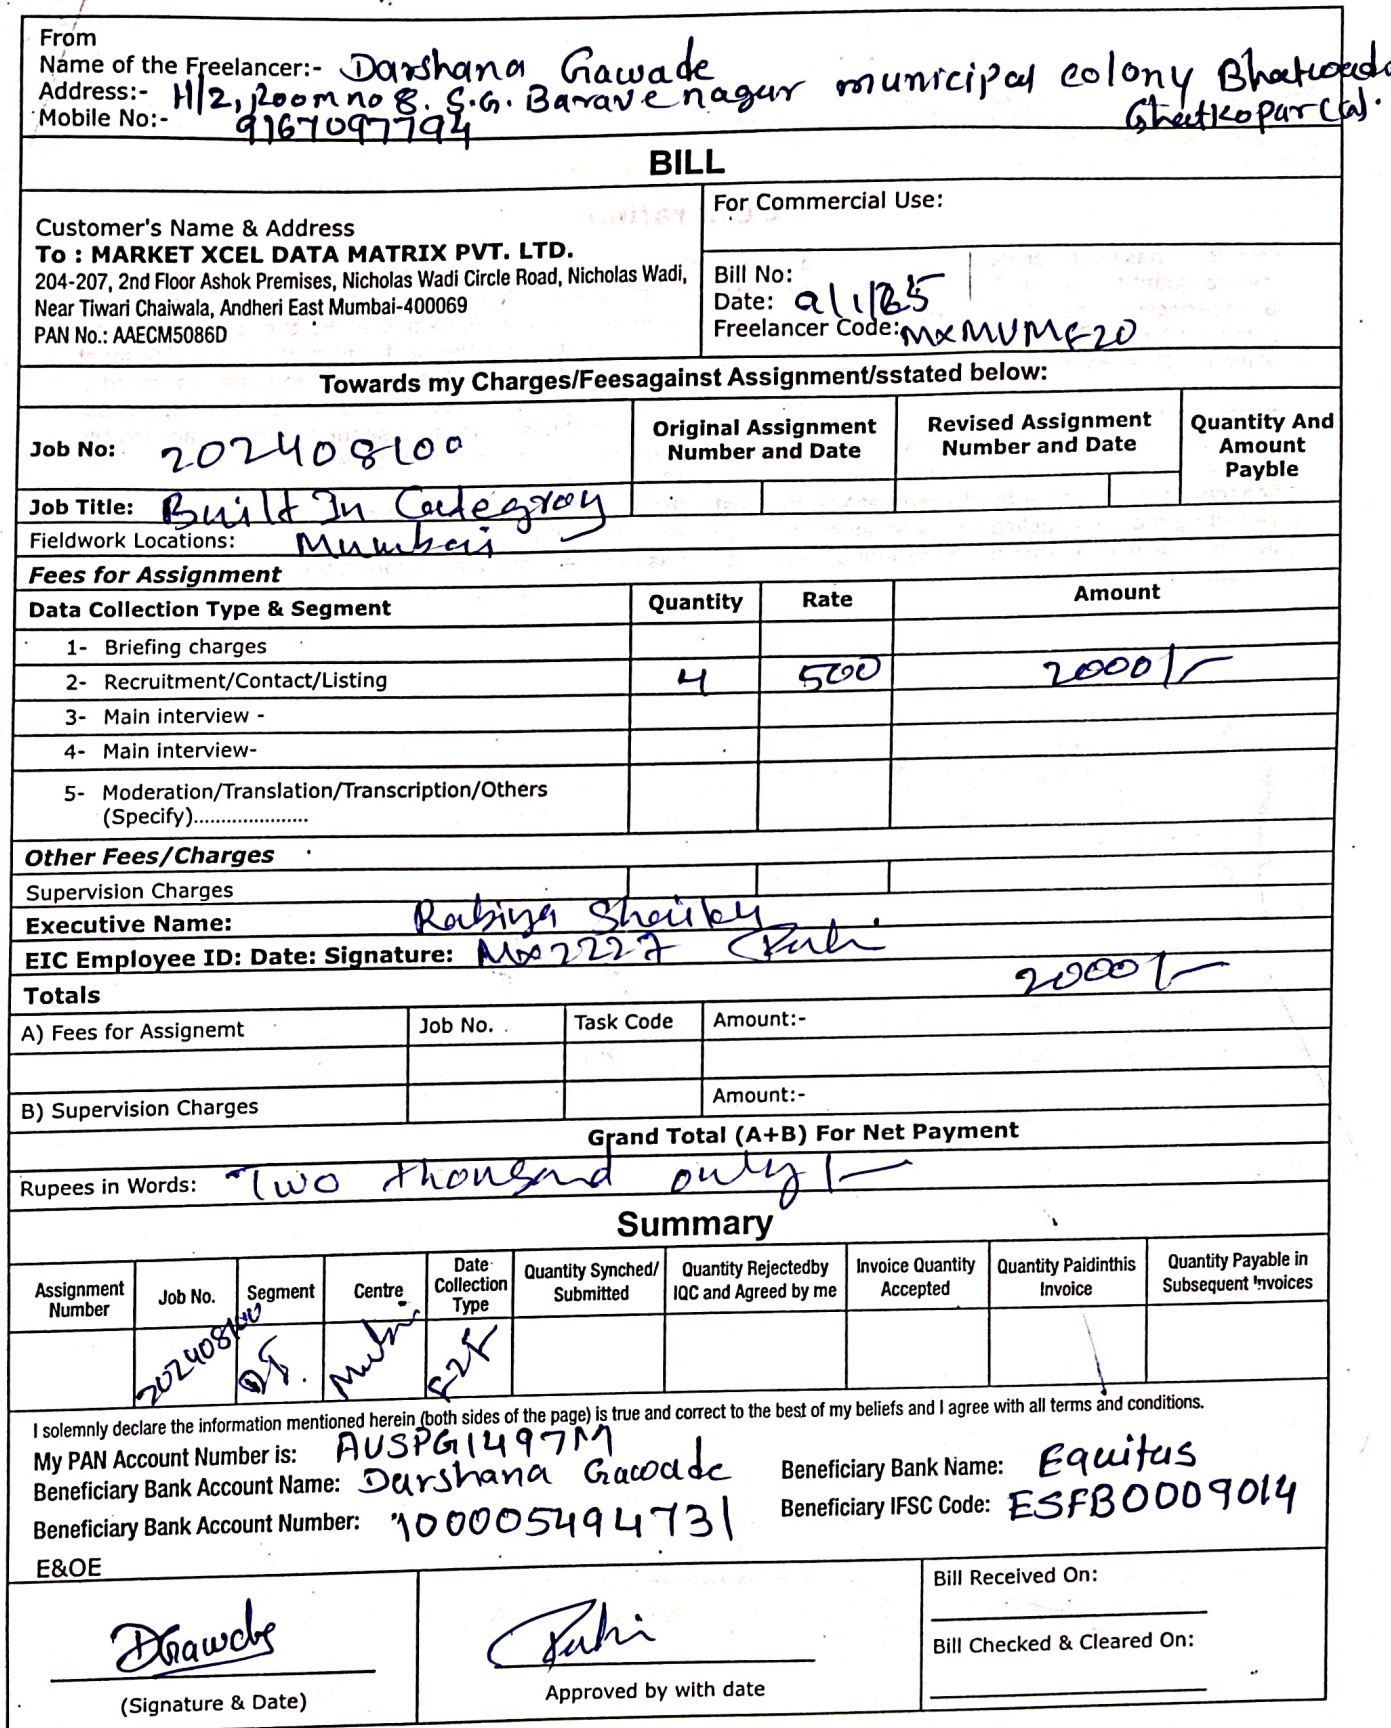 From
Name of the Freelancer:- Darshana Gawade
Address:- H/2, Room no 8. S.G. Barave nagar municipal colony Bhatwada
Ghatkopar (w).
Mobile No:- 9167097794
BILL
Customer's Name & Address
To : MARKET XCEL DATA MATRIX PVT. LTD.
204-207, 2nd Floor Ashok Premises, Nicholas Wadi Circle Road, Nicholas Wadi,
Near Tiwari Chaiwala, Andheri East Mumbai-400069
PAN No.: AAECM5086D
For Commercial Use:
Bill No:
Date:
Freelancer Code: MXMUMF20
Towards my Charges/Feesagainst Assignment/sstated below:
Job No: 202408100
Original Assignment Number and Date
Revised Assignment Number and Date
Quantity And Amount Payble
Job Title: Built In Cadegroy
Fieldwork Locations: Mumbai
Fees for Assignment
Data Collection Type & Segment Quantity Rate Amount
1- Briefing charges
2- Recruitment/Contact/Listing 4 500 2000/-
3- Main interview -
4- Main interview-
5- Moderation/Translation/Transcription/Others
(Specify).....................
Other Fees/Charges
Supervision Charges
Executive Name: Rabiya Shaikh
EIC Employee ID: Date: Signature: Mx2227
Totals 2000/-
A) Fees for Assignemt Job No. Task Code Amount:-
B) Supervision Charges Amount:-
Grand Total (A+B) For Net Payment
Rupees in Words: Two thousand only/-
Summary
Assignment Number
Job No.
Segment
Centre
Date Collection Type
Quantity Synched/ Submitted
Quantity Rejectedby IQC and Agreed by me
Invoice Quantity Accepted
Quantity Paidinthis Invoice
Quantity Payable in Subsequent Invoices
202408100 Mumbai F2F
I solemnly declare the information mentioned herein (both sides of the page) is true and correct to the best of my beliefs and I agree with all terms and conditions.
My PAN Account Number is: AUSPG1497M
Beneficiary Bank Account Name: Darshana Gawade
Beneficiary Bank Name: Equitus
Beneficiary Bank Account Number: 100005494731
Beneficiary IFSC Code: ESFB0009014
E&OE
DGawade
(Signature & Date)
Approved by with date
Bill Received On:
Bill Checked & Cleared On: